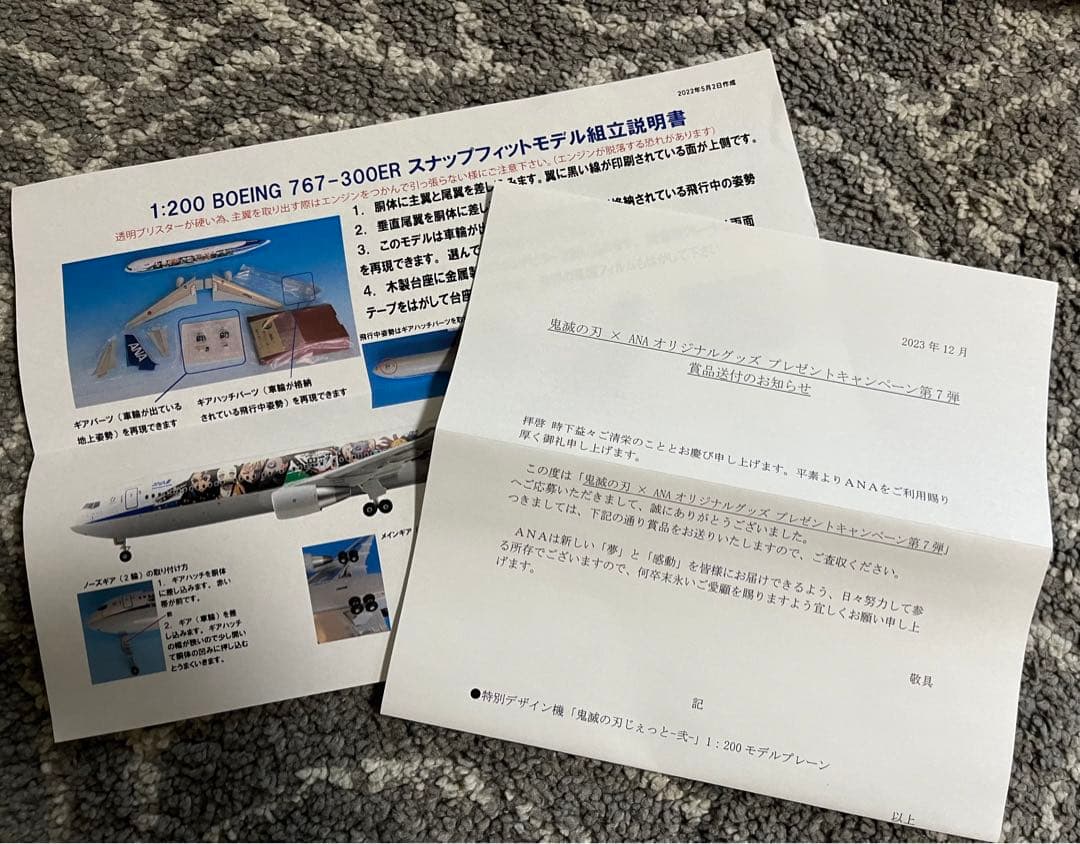 2022年5月2日作成
1:200 BOEING 767-300ER スナップフィットモデル組立説明書
透明ブリスターが硬い為、主翼を取り出す際はエンジンをつかんで引っ張らない様にご注意下さい。(エンジンが脱落する恐れがあります)
1. 胴体に主翼と尾翼を差し込みます。翼に黒い線が印刷されている面が上側です。
2. 垂直尾翼を胴体に差し
格納されている飛行中の姿勢
3. このモデルは車輪が出
を再現できます。選んで
画面
4. 木製台座に金属製
テープをはがして台座
飛行中姿勢はギアハッチパーツを取
ANA
ギアパーツ(車輪が出ている
地上姿勢)を再現できます
ギアハッチパーツ(車輪が格納
されている飛行中姿勢)を再現できます
ANA
メインギア
ノーズギア(2輪)の取り付け方
1. ギアハッチを胴体
に差し込みます。赤い
帯が前です。
前
2. ギア(車輪)を差
し込みます。ギアハッチ
の幅が狭いので少し開い
て胴体の凹みに押し込む
とうまくいきます。
2023年12月
鬼滅の刃 × ANA オリジナルグッズ プレゼントキャンペーン第7弾
賞品送付のお知らせ
拝啓 時下益々ご清栄のこととお慶び申し上げます。平素よりANAをご利用賜り
厚く御礼申し上げます。
この度は「鬼滅の刃 × ANA オリジナルグッズ プレゼントキャンペーン第7弾」
へご応募いただきまして、誠にありがとうございました。
つきましては、下記の通り賞品をお送りいたしますので、ご査収ください。
ANAは新しい「夢」と「感動」を皆様にお届けできるよう、日々努力して参
る所存でございますので、何卒末永いご愛顧を賜りますよう宜しくお願い申し上
げます。
敬具
記
●特別デザイン機「鬼滅の刃じぇっと-弐-」1：200 モデルプレーン
以上